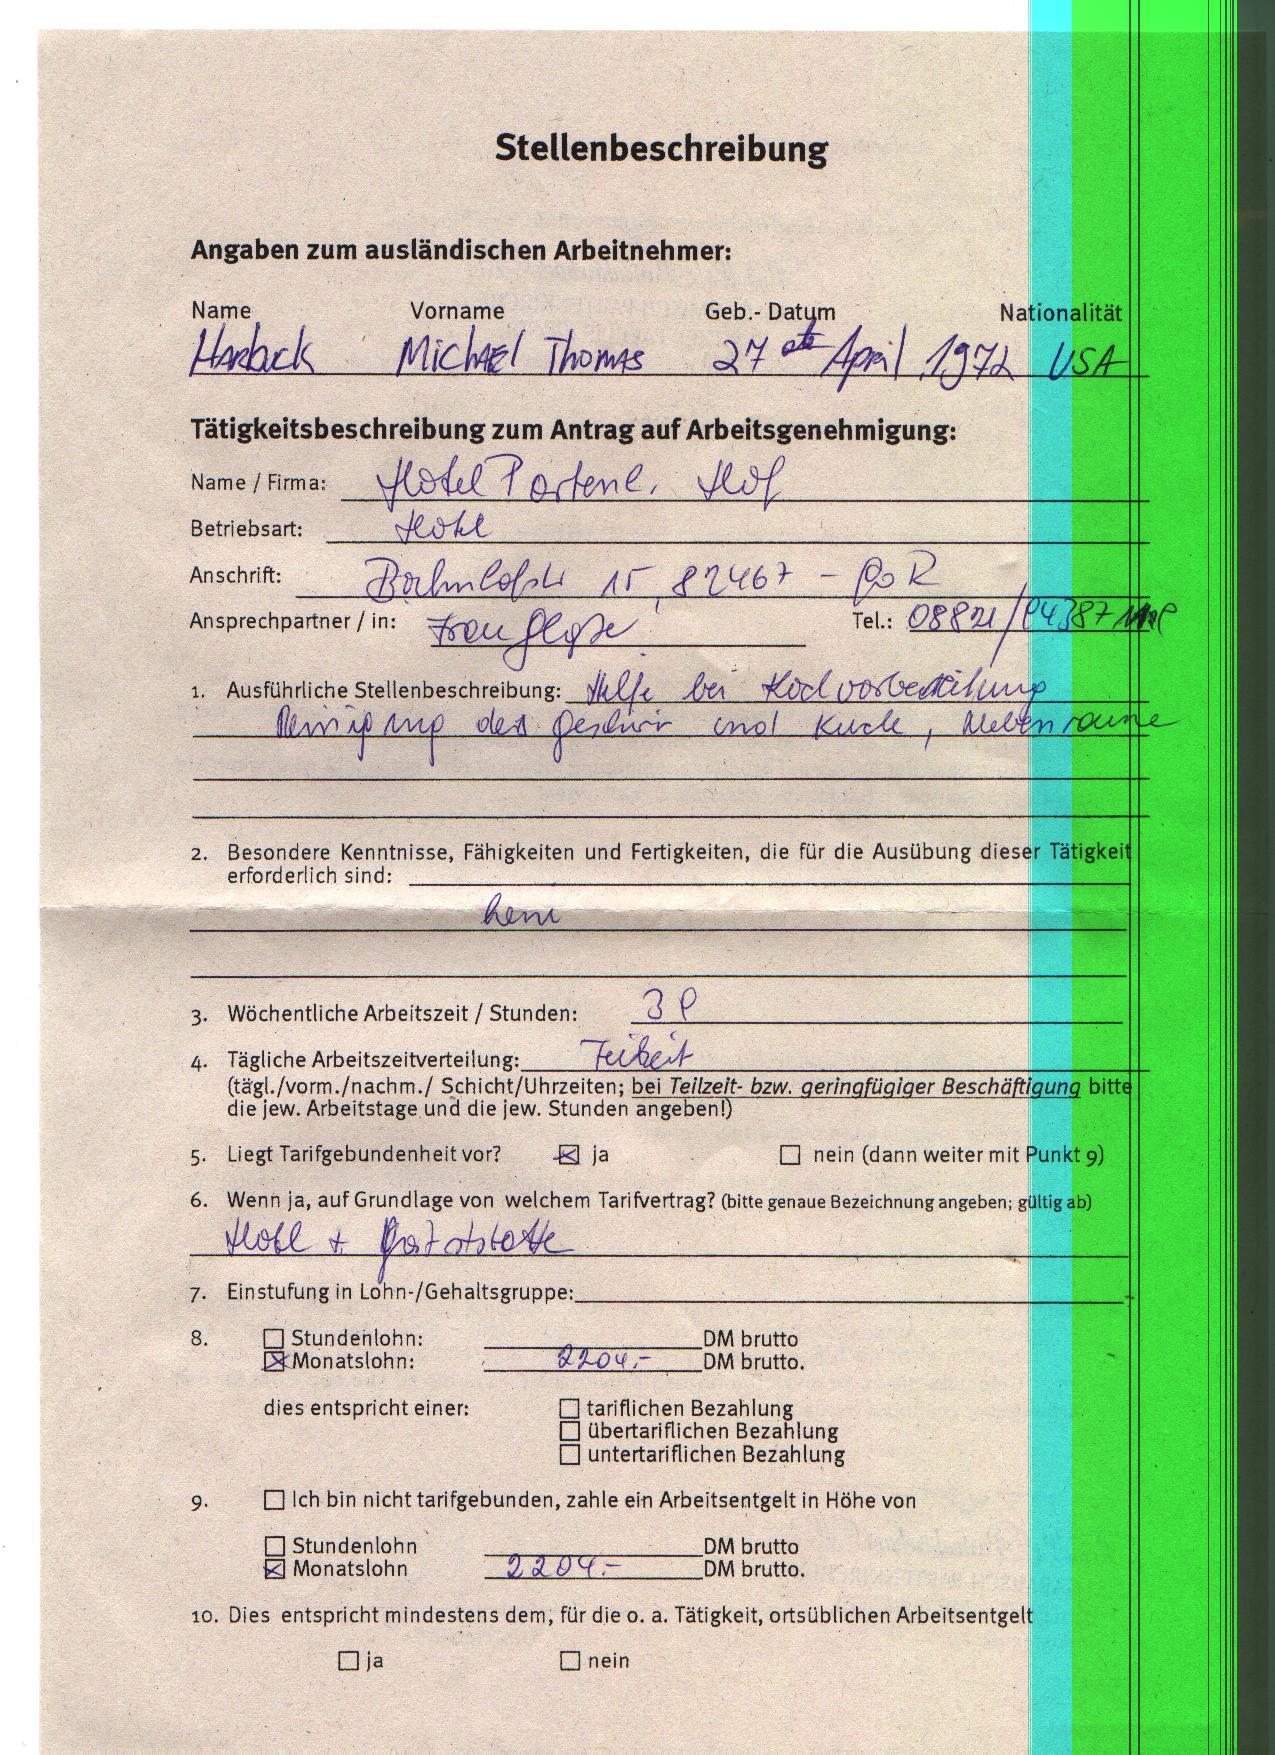 Stellenbeschreibung
Angaben zum ausländischen Arbeitnehmer:
Name Vorname Geb.- Datum Nationalität
Harback Michael Thomas 27 April 1972 USA
Tätigkeitsbeschreibung zum Antrag auf Arbeitsgenehmigung:
Name / Firma: Hotel Partenk. Hof
Betriebsart: Hotel
Anschrift: Bahnhofstr 15, 82467 -
Ansprechpartner / in: Frau Tel.: 08821/
1. Ausführliche Stellenbeschreibung: Hilfe bei Kochvorbereitung
Reinigung des Geschirr und Küche, Nebenräume
2. Besondere Kenntnisse, Fähigkeiten und Fertigkeiten, die für die Ausübung dieser Tätigkeit
erforderlich sind:
3. Wöchentliche Arbeitszeit / Stunden: 38
4. Tägliche Arbeitszeitverteilung:
(tägl./vorm./nachm./ Schicht/Uhrzeiten; bei Teilzeit- bzw. geringfügiger Beschäftigung bitte
die jew. Arbeitstage und die jew. Stunden angeben!)
5. Liegt Tarifgebundenheit vor? ja nein (dann weiter mit Punkt 9)
6. Wenn ja, auf Grundlage von welchem Tarifvertrag? (bitte genaue Bezeichnung angeben; gültig ab)
Hotel + Gaststätte
7. Einstufung in Lohn-/Gehaltsgruppe:
8. Stundenlohn: DM brutto
Monatslohn: 2204.- DM brutto.
dies entspricht einer: tariflichen Bezahlung
übertariflichen Bezahlung
untertariflichen Bezahlung
9. Ich bin nicht tarifgebunden, zahle ein Arbeitsentgelt in Höhe von
Stundenlohn DM brutto
Monatslohn 2204.- DM brutto.
10. Dies entspricht mindestens dem, für die o. a. Tätigkeit, ortsüblichen Arbeitsentgelt
ja nein